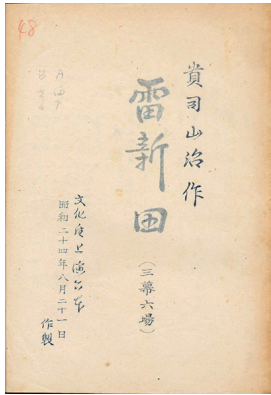 48
貴司山治作
雷新田
（三幕六場）
文化座上演台本
昭和二十四年八月二十一日
作製